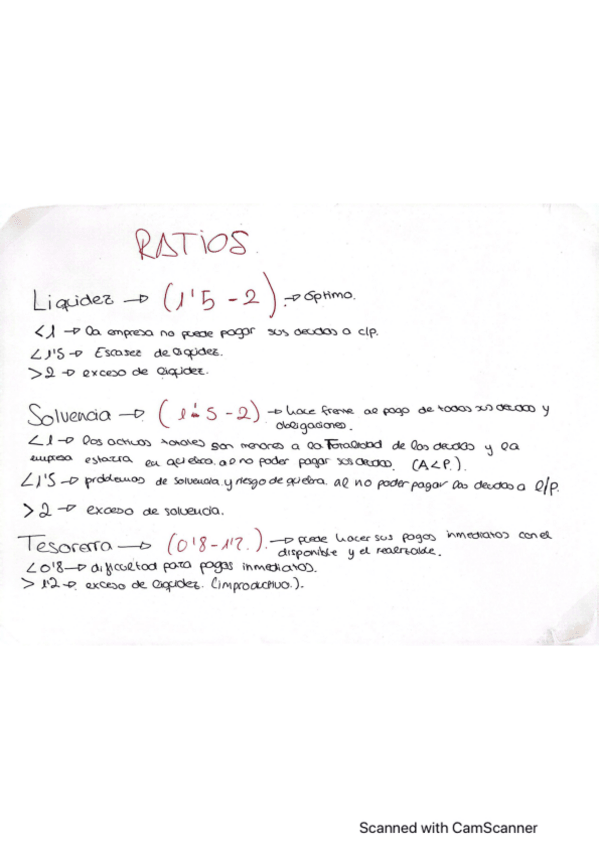 RATIOS.
Liquidez → (1'5 - 2) → óptimo.
<1 → la empresa no puede pagar sus deudas a c/p.
<1'5 → Escasez de liquidez.
>2 → exceso de liquidez.
Solvencia → (1'5 - 2) → hace frente al pago de todas sus deudas y
obligaciones.
<1 → los activos totales son menores a la Totalidad de las deudas y la
empresa estaría en quiebra al no poder pagar sus deudas. (A<P.).
<1'5 → problemas de solvencia y riesgo de quiebra al no poder pagar las deudas a l/p.
>2 → exceso de solvencia.
Tesorería → (0'8 - 1'2.) → puede hacer sus pagos inmediatos con el
disponible y el realizable.
<0'8 → dificultad para pagos inmediatos.
> 1'2 → exceso de liquidez. (improductivo.).
Scanned with CamScanner